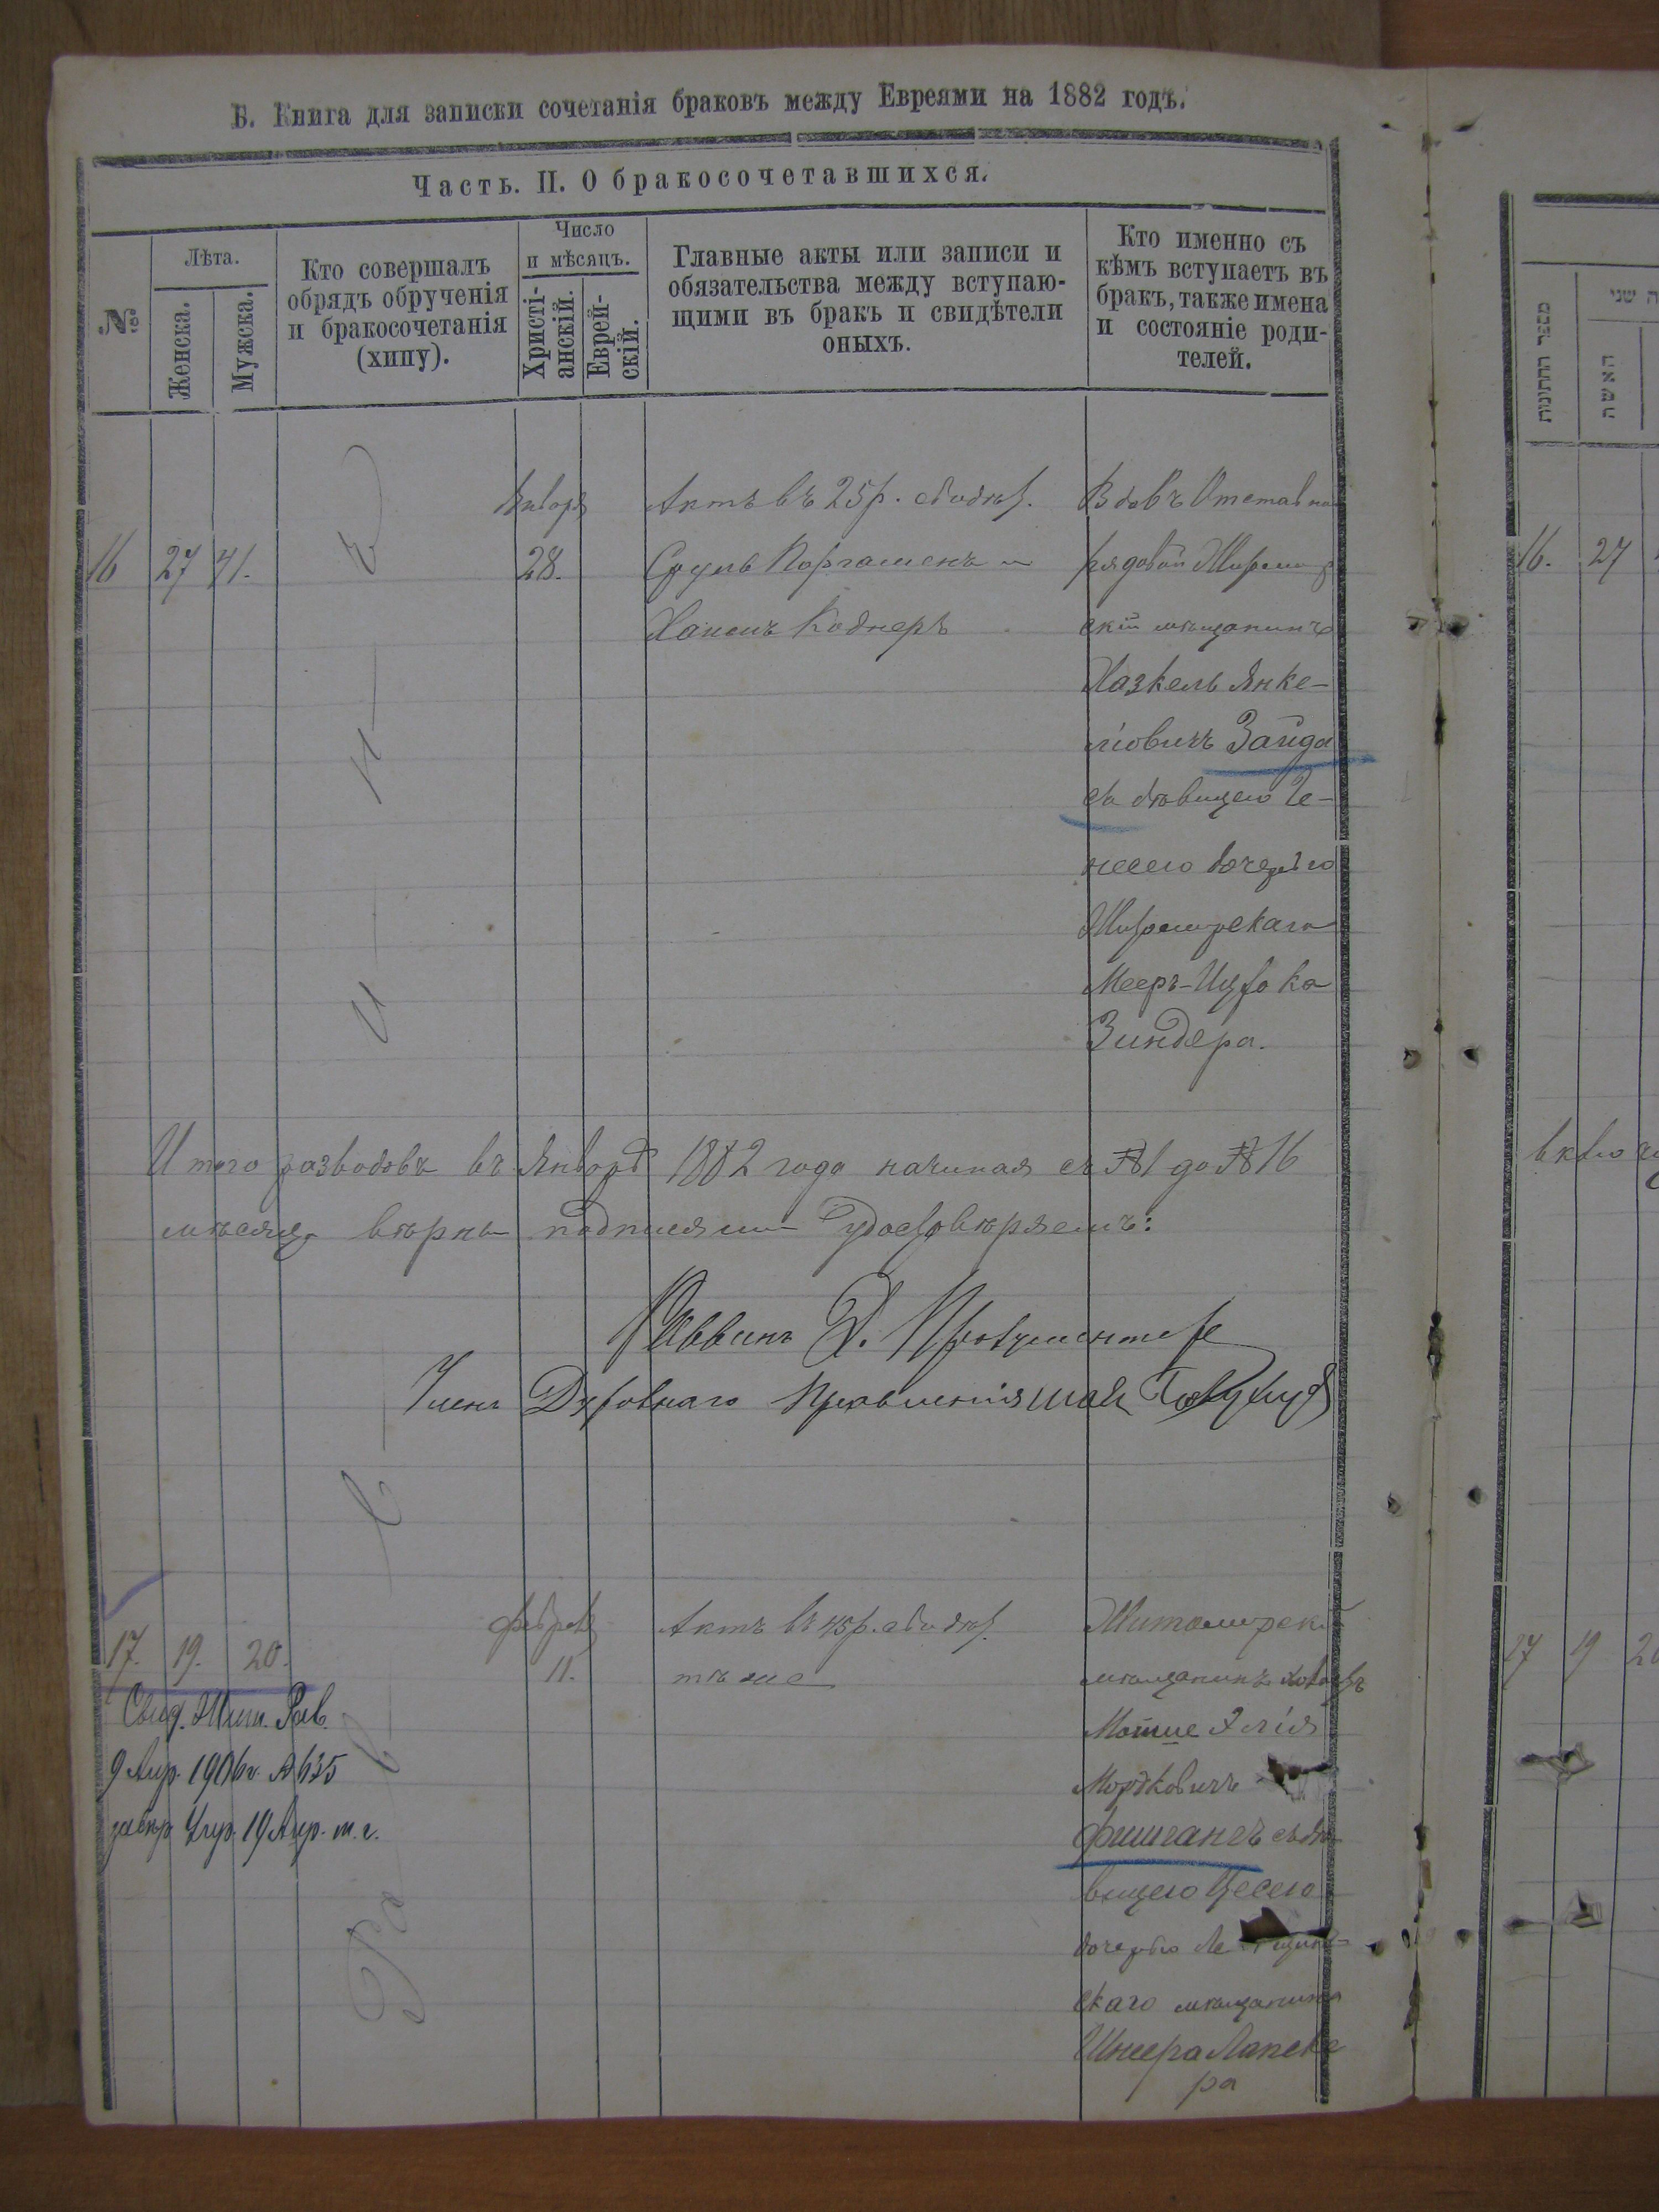 Б. Книга для записки сочетанія браковъ между Евреями на 1882 годъ.
Часть. II. О бракосочетавшихся.
№
Лѣта.
Женска.
Мужска.
Кто совершалъ
обрядъ обрученія
и бракосочетанія
(хипу).
Число
и мѣсяцъ.
Христі-
анскій.
Еврей-
скій.
Главные акты или записи и
обязательства между вступаю-
щими въ бракъ и свидѣтели
оныхъ.
Кто именно съ
кѣмъ вступаетъ въ
бракъ, также имена
и состояніе роди-
телей.
Января
16 27 41. 28.
Актъ въ 25 р. свидѣт.
Сруль и
Каднеръ
Вдовъ Отставной
рядовой Житомир
скій мѣщанинъ
Хазкель Янке-
ліовичъ Зайда
съ дѣвицею Ге-
несею дочерью
Житомирскаго
Мееръ-Ицрока
Зиндера.
Итого разводовъ въ Январѣ 1882 года начиная съ №1 до №16
мѣсяца вѣрны подписями удостовѣряемъ:
Раввинъ
Членъ Духовнаго Правленія
17. 19. 20.
Февраля
11.
Актъ въ 45 р. свидѣт.
тѣ же
Житомирскій
мѣщанинъ
Мошие Элія
Мордковичъ
Фишгангъ съ дѣ
вицею Цесею
дочерью
скаго мѣщанина
Шнеера Лапске
ра
Свид. Жит. Рав.
9 Апр. 1906 г. № 635
19 Апр. т. г.
מספר החתונות
האשה
שני
16. 27
17 19 20